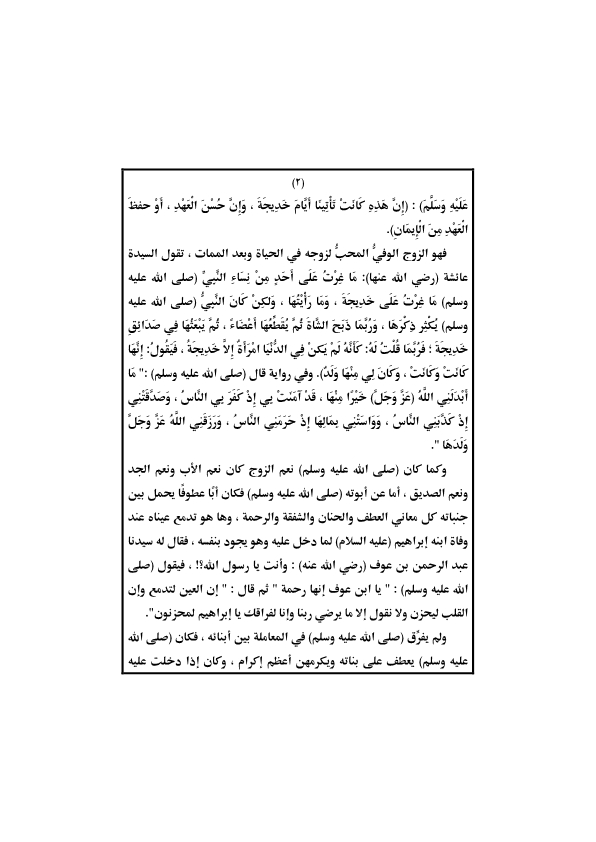 (٢)
عَلَيْهِ وَسَلَّمَ) : (إِنَّ هَذِهِ كَانَتْ تَأْتِينَا أَيَّامَ خَدِيجَةَ ، وَإِنَّ حُسْنَ الْعَهْدِ ، أَوْ حفظَ
الْعَهْدِ مِنَ الْإِيمَانِ).
فهو الزوج الوفيُّ المحبُّ لزوجه في الحياة وبعد الممات ، تقول السيدة
عائشة (رضي الله عنها): مَا غِرْتُ عَلَى أَحَدٍ مِنْ نِسَاءِ النَّبِيِّ (صلى الله عليه
وسلم) مَا غِرْتُ عَلَى خَدِيجَةَ ، وَمَا رَأَيْتُهَا ، وَلكِنْ كَانَ النَّبِيُّ (صلى الله عليه
وسلم) يُكْثِرِ ذِكْرَهَا ، وَرُبَّمَا ذَبَحَ الشَّاةَ ثُمَّ يُقَطِّعُهَا أَعْضَاءً ، ثُمَّ يَبْعَثُهَا فِي صَدَائِقِ
خَدِيجَةَ ؛ فَرُبَّمَا قُلْتُ لَهُ: كَأَنَّهُ لَمْ يَكنْ فِي الدُّنْيَا امْرَأَةٌ إِلاَّ خَدِيجَةُ ، فَيَقُولُ: إِنَّهَا
كَانَتْ وَكَانَتْ ، وَكَانَ لِي مِنْهَا وَلَدٌ). وفي رواية قال (صلى الله عليه وسلم) :" مَا
أَبْدَلَنِي اللَّهُ (عَزَّ وَجَلَّ) خَيْرًا مِنْهَا ، قَدْ آمَنَتْ بِي إِذْ كَفَرَ بِي النَّاسُ ، وَصَدَّقَتْنِي
إِذْ كَذَّبَنِي النَّاسُ ، وَوَاسَتْنِي بِمَالِهَا إِذْ حَرَمَنِي النَّاسُ ، وَرَزَقَنِي اللَّهُ عَزَّ وَجَلَّ
وَلَدَهَا ".
وكما كان (صلى الله عليه وسلم) نعم الزوج كان نعم الأب ونعم الجد
ونعم الصديق ، أما عن أبوته (صلى الله عليه وسلم) فكان أبًا عطوفًا يحمل بين
جنباته كل معاني العطف والحنان والشفقة والرحمة ، وها هو تدمع عيناه عند
وفاة ابنه إبراهيم (عليه السلام) لما دخل عليه وهو يجود بنفسه ، فقال له سيدنا
عبد الرحمن بن عوف (رضي الله عنه) : وأنت يا رسول الله؟! ، فيقول (صلى
الله عليه وسلم) : " يا ابن عوف إنها رحمة " ثم قال : " إن العين لتدمع وإن
القلب ليحزن ولا نقول إلا ما يرضي ربنا وإنا لفراقك يا إبراهيم لمحزنون".
ولم يفرِّق (صلى الله عليه وسلم) في المعاملة بين أبنائه ، فكان (صلى الله
عليه وسلم) يعطف على بناته ويكرمهن أعظم إكرام ، وكان إذا دخلت عليه